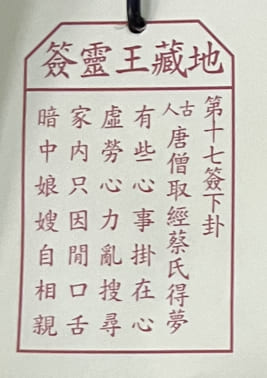 地藏王靈簽
第十七簽下卦
古人唐僧取經蔡氏得夢
有些心事掛在心
虛勞心力亂搜尋
家內只因閒口舌
暗中娘嫂自相親